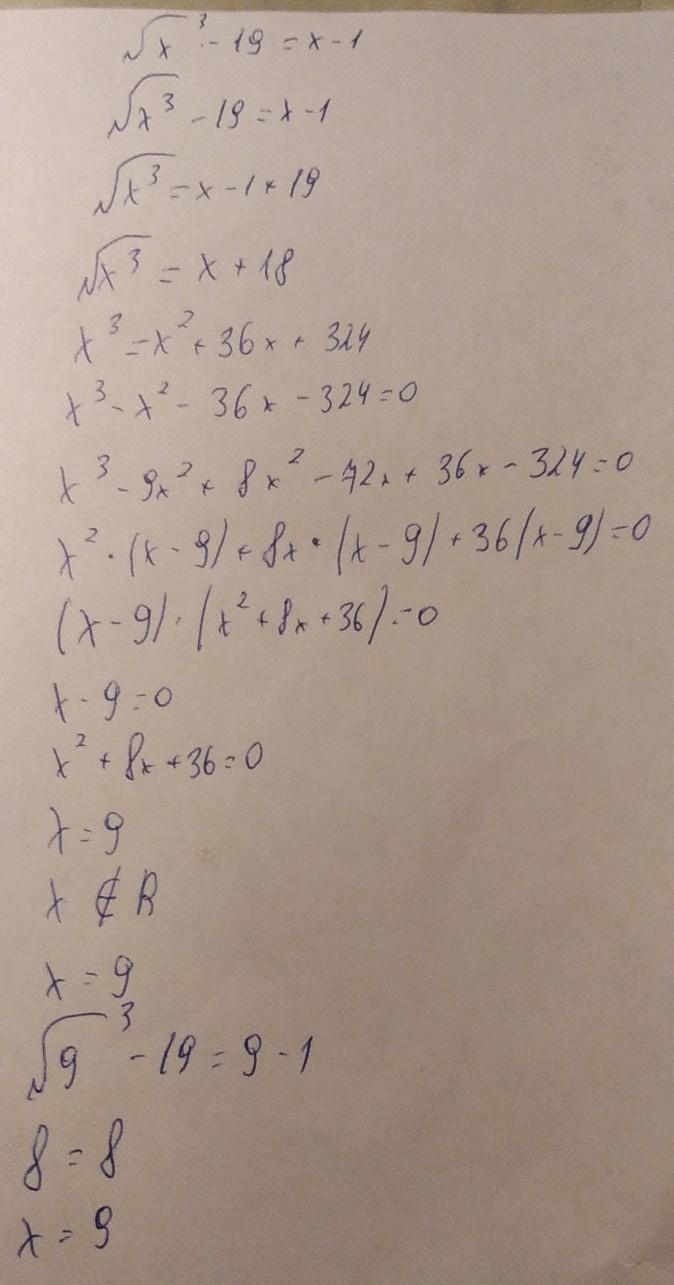 √x³ - 19 = x - 1
√x³ - 19 = x - 1
√x³ = x - 1 + 19
√x³ = x + 18
x³ = x² + 36x + 324
x³ - x² - 36x - 324 = 0
x³ - 9x² + 8x² - 72x + 36x - 324 = 0
x² · (x - 9) + 8x · (x - 9) + 36(x - 9) = 0
(x - 9) · (x² + 8x + 36) = 0
x - 9 = 0
x² + 8x + 36 = 0
x = 9
x ∉ R
x = 9
√9³ - 19 = 9 - 1
8 = 8
x = 9